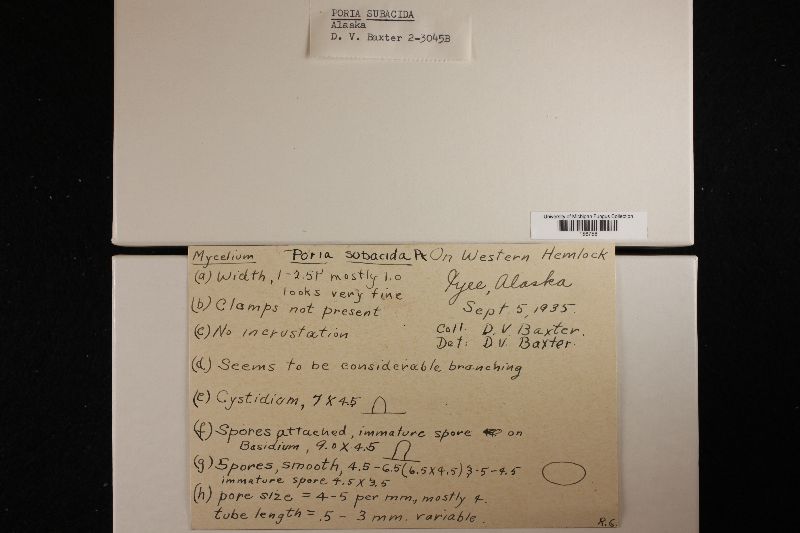 PORIA SUBACIDA
Alaska
D. V. Baxter 2-3045B
University of Michigan Fungus Collection
Mycelium Poria subacida Pk On Western Hemlock
(a) Width, 1-2.5µ mostly 1.0
looks very fine
Tyee, Alaska
Sept 5, 1935.
(b) Clamps not present
(c) No incrustation
Coll. D. V Baxter.
Det: D V. Baxter.
(d.) Seems to be considerable branching
(e) Cystidium, 7 x 4.5
(f) Spores attached, immature spore on
Basidium, 9.0 x 4.5
(g) Spores, smooth, 4.5-6.5 (6.5 x 4.5) 3.5-4.5
immature spore 4.5 x 3.5
(h) pore size = 4-5 per mm, mostly 4.
tube length = .5 - 3 mm. variable.
R.G.